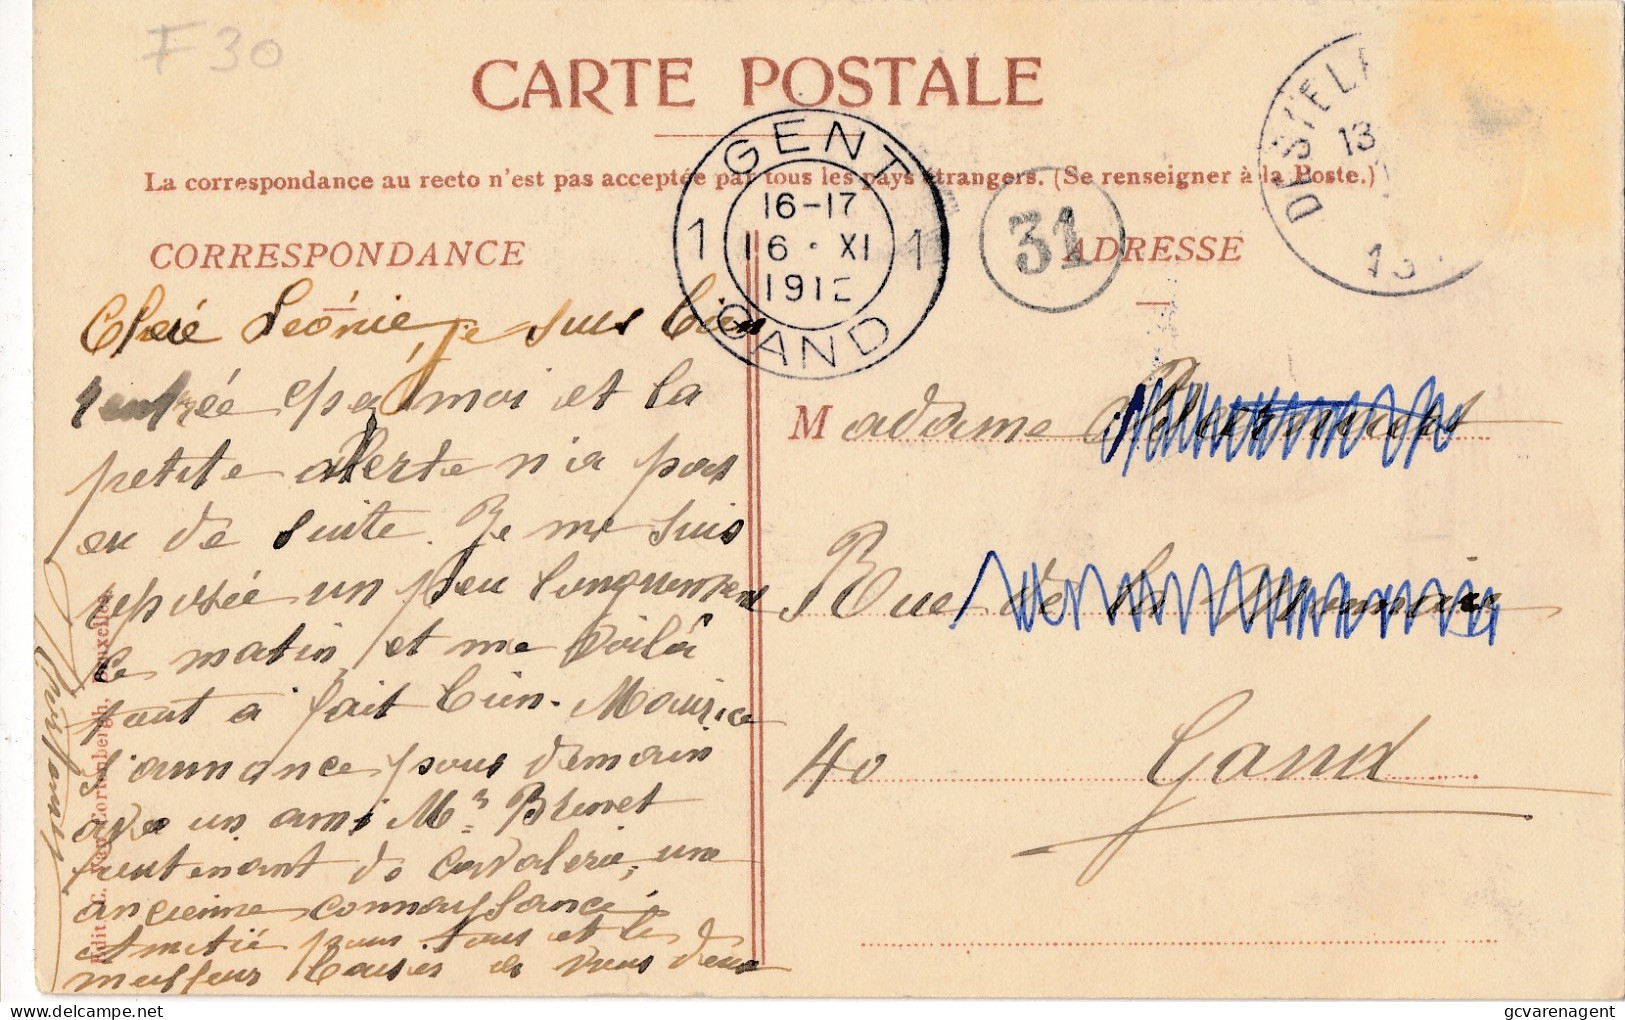 F 30
CARTE POSTALE
La correspondance au recto n'est pas acceptée par tous les pays étrangers. (Se renseigner à la Poste.)
GENT
16-17
16 · XI
1912
1 1
GAND
31
DESTEL
13
13
CORRESPONDANCE
ADRESSE
Cheré Léonie, je suis bien
rentrée chez moi et la
petite alerte n'a pas
eu de suite. Je me suis
reposée un peu longuement
ce matin, et me voilà
tout à fait bien. Maurice
s'annonce pour demain
avec un ami Mr Brunet
lieutenant de cavalerie, une
ancienne connaissance.
et amitié pour tous et les
meilleurs baisers à vous deux
Edit. L. Van Cortenbergh, Bruxelles.
Madame
Rue de la
40 Gand
delcampe.net
gcvarenagent